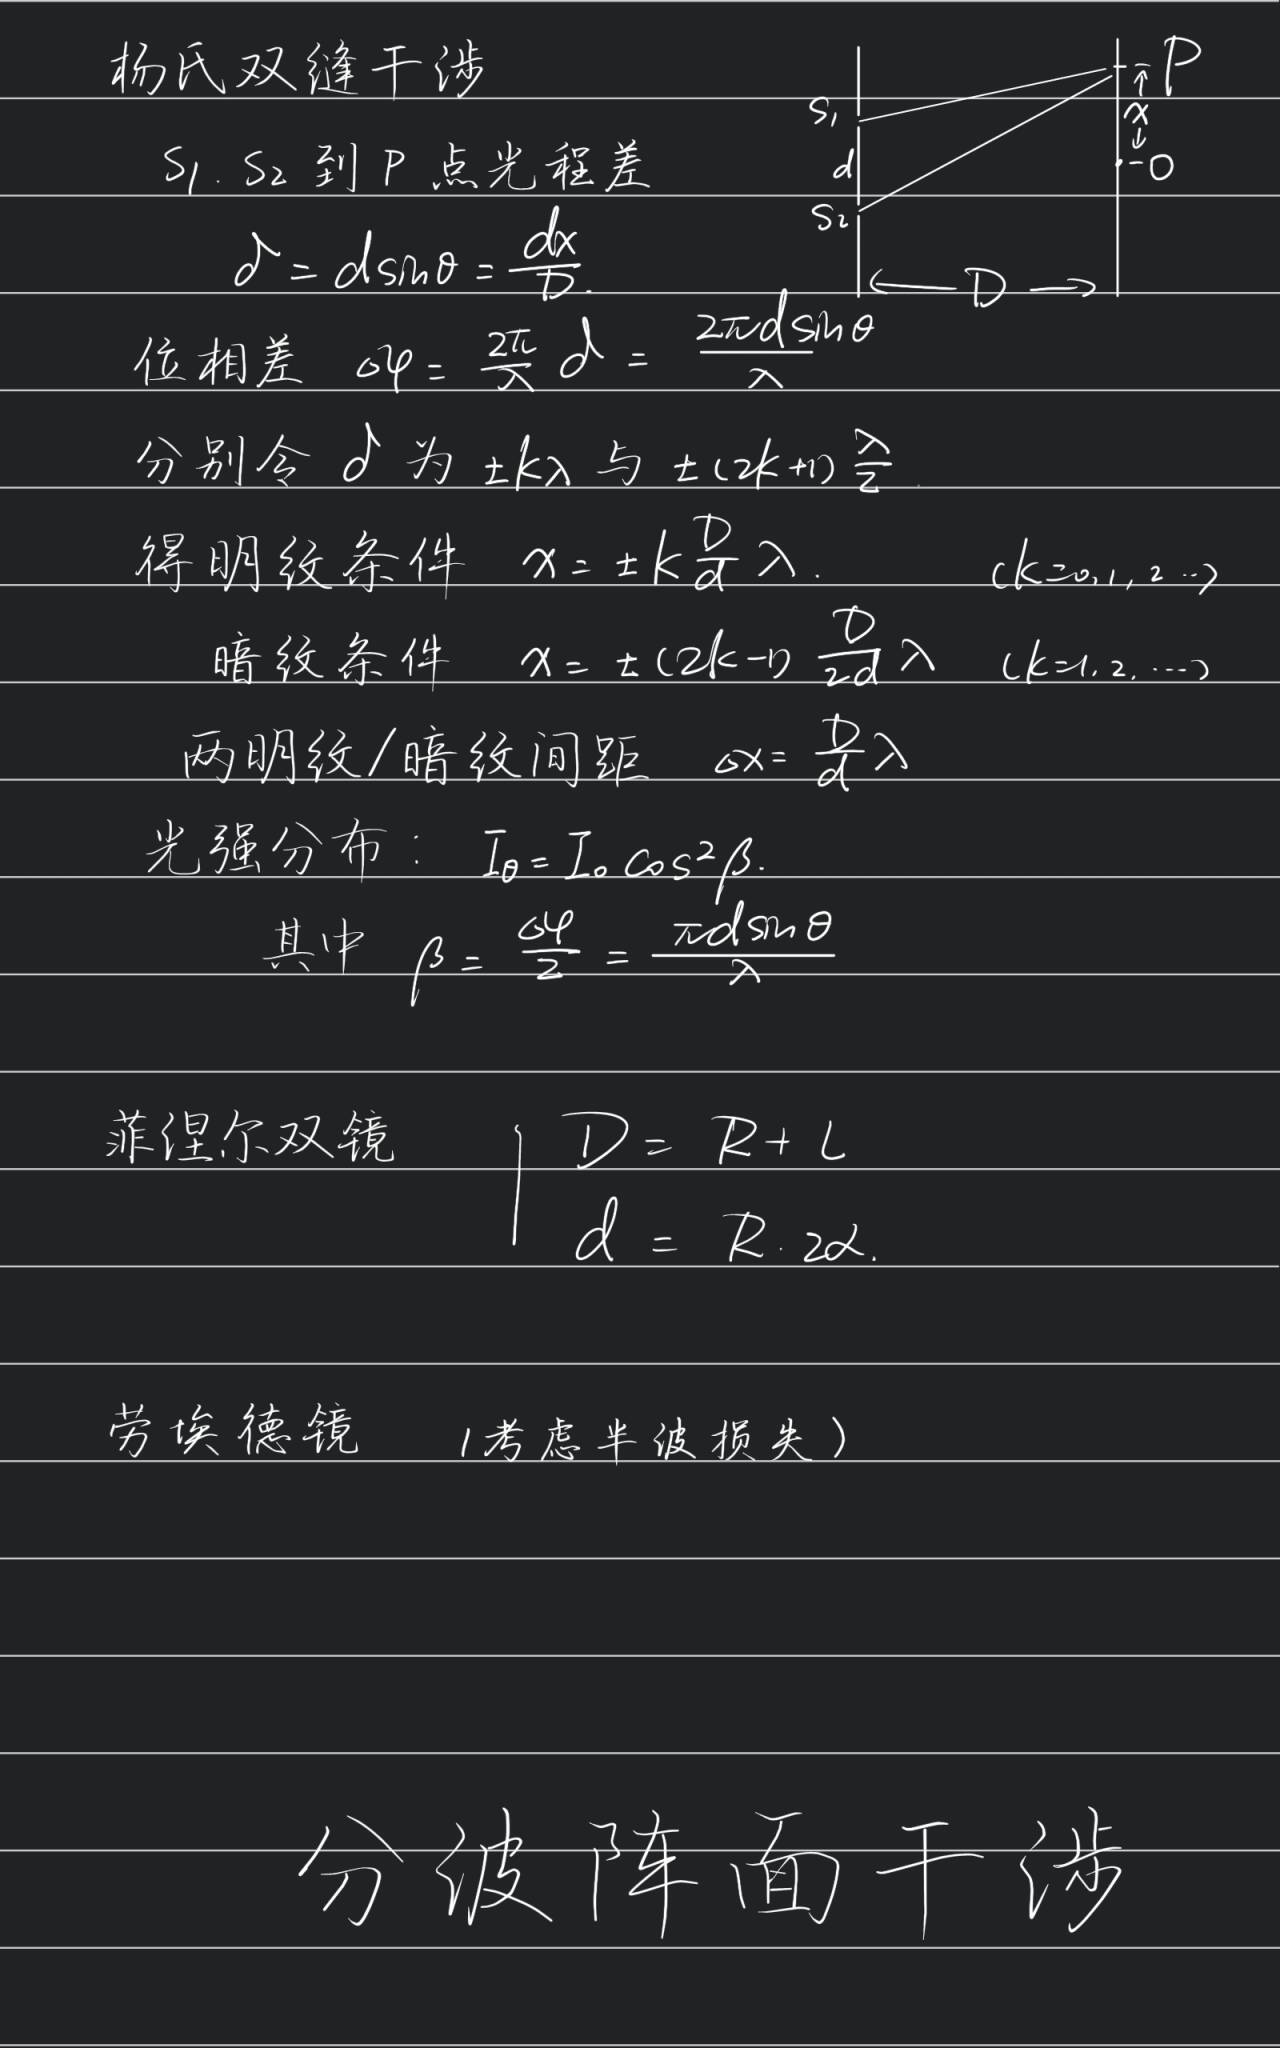 杨氏双缝干涉
S₁. S₂ 到 P 点光程差
δ = dsinθ = dx/D.
位相差 Δφ = 2π/λ δ = 2πdsinθ/λ
分别令 δ 为 ±kλ 与 ±(2k+1) λ/2.
得明纹条件 x = ±k D/d λ. (k=0,1,2…)
暗纹条件 x = ±(2k-1) D/2d λ (k=1,2,…)
两明纹/暗纹间距 Δx = D/d λ
光强分布: Iθ = I₀ cos²β.
其中 β = Δφ/2 = πdsinθ/λ
S₁
d
S₂
P
x
O
D
菲涅尔双镜 D = R + L
d = R · 2α.
劳埃德镜 (考虑半波损失)
分波阵面干涉